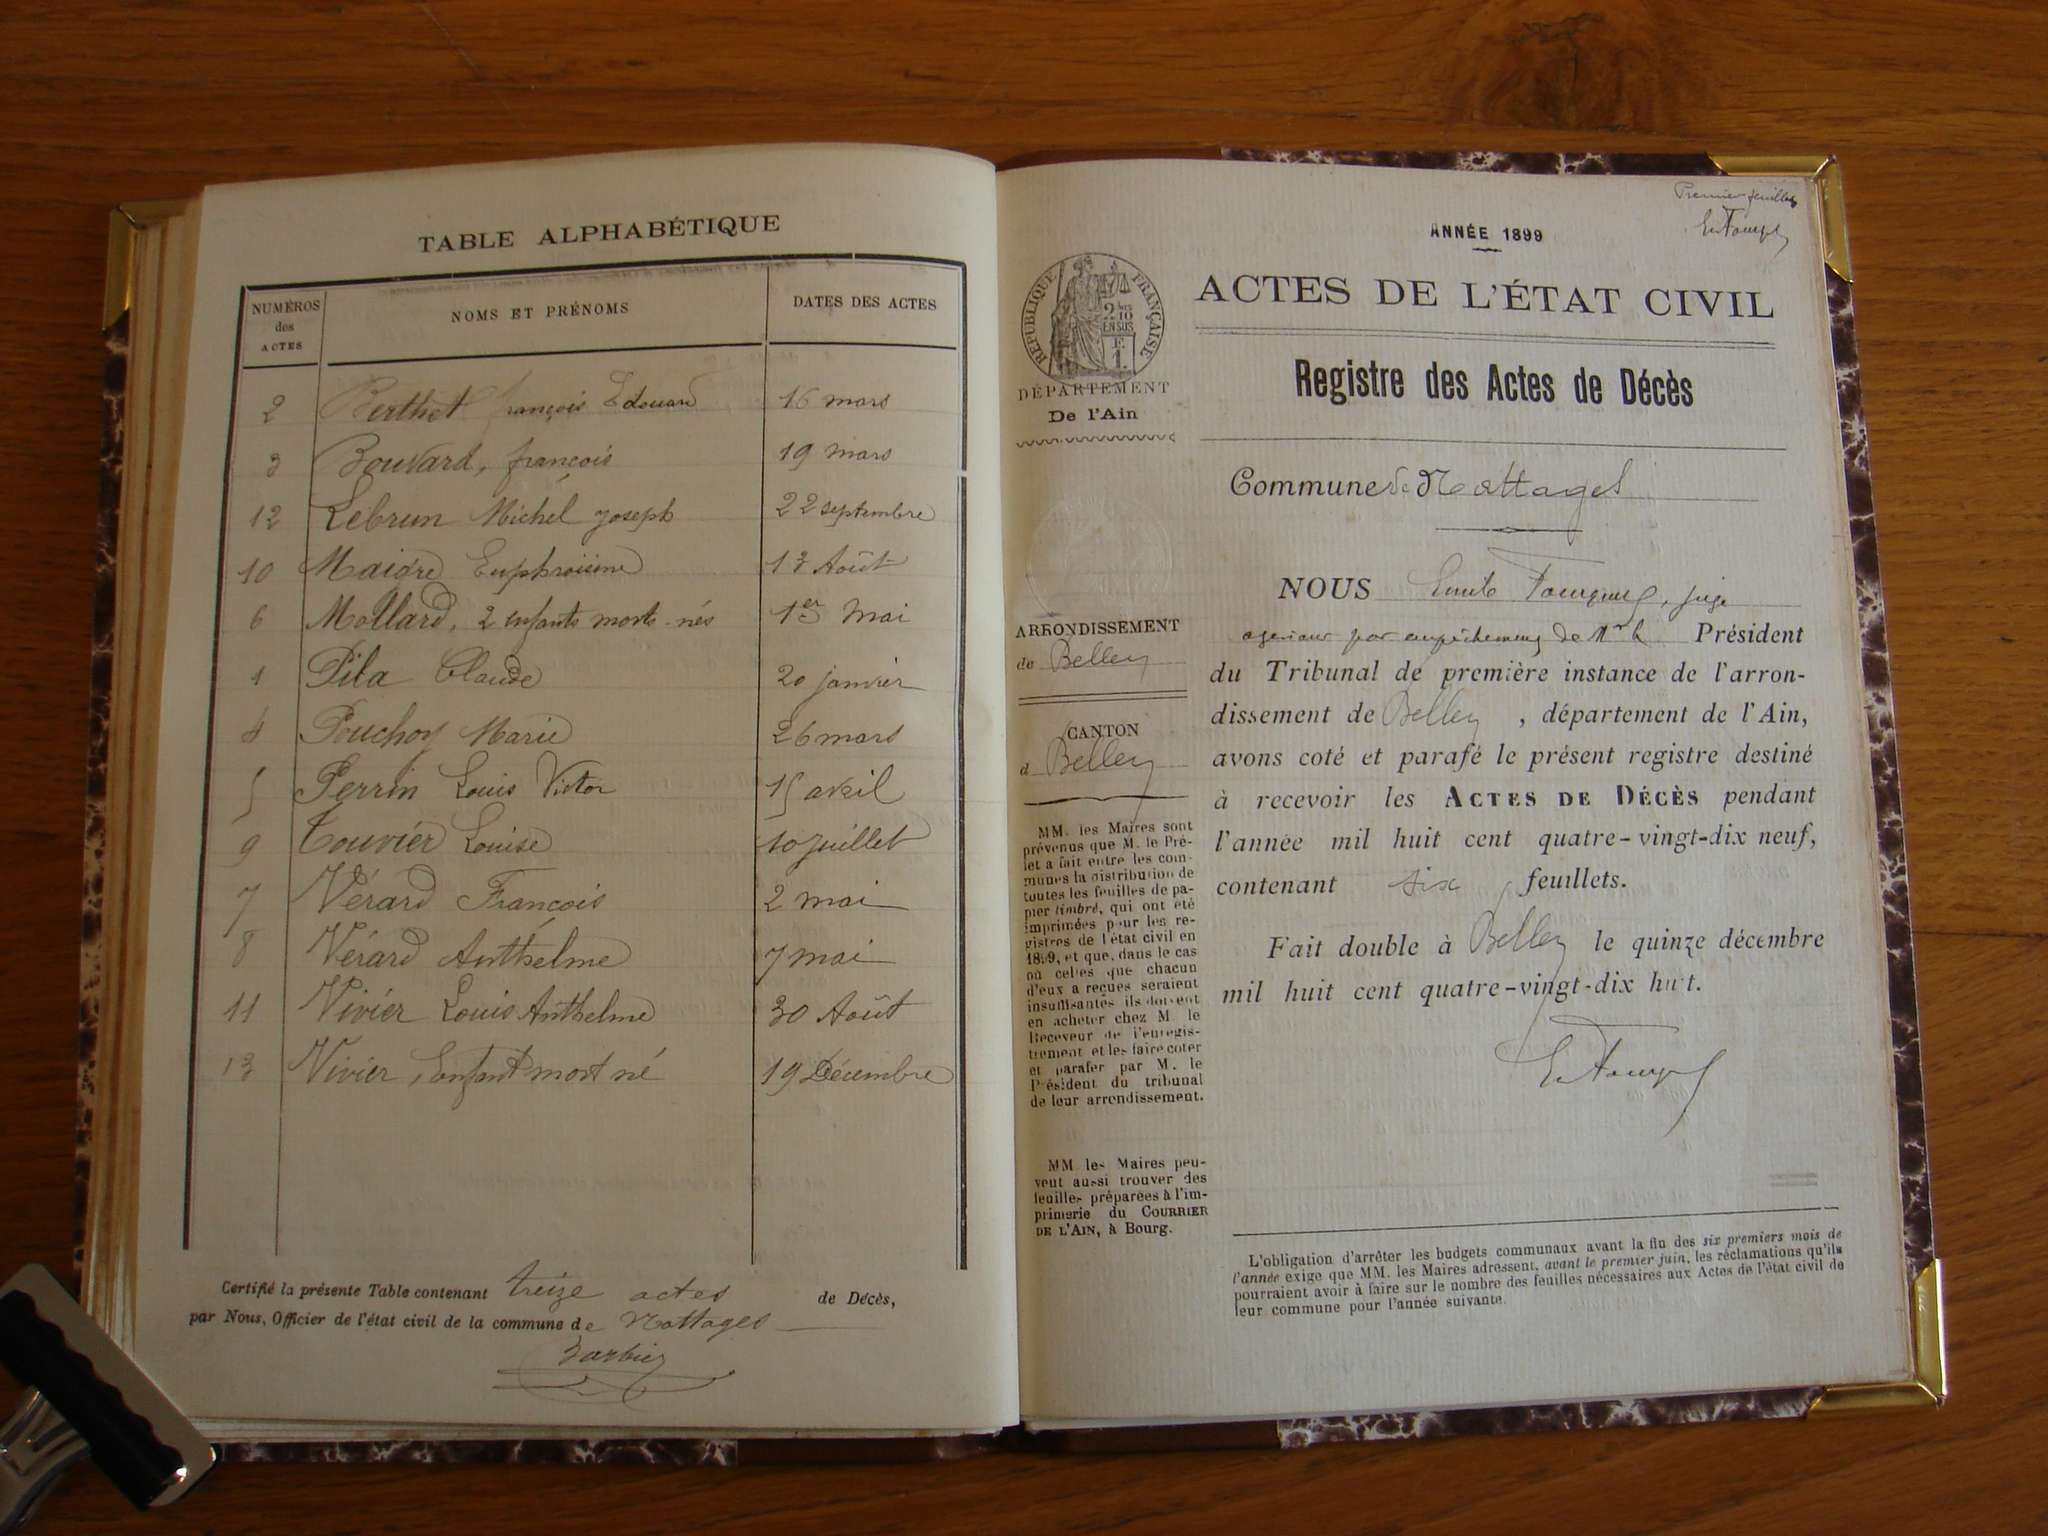 TABLE ALPHABÉTIQUE
NUMÉROS des ACTES
NOMS ET PRÉNOMS
DATES DES ACTES
2 Berthet françois Edouard 16 mars
3 Bouvard, françois 19 mars
12 Lebrun Michel joseph 22 septembre
10 Maigre Euphroisine 13 Août
6 Mollard, 2 enfants morts-nés 1er Mai
1 Pila Claude 20 janvier
4 Pouchoy Marie 26 mars
5 Perrin Louis Victor 15 avril
9 Touvier Louise 10 juillet
7 Vérard François 2 mai
8 Vérard Anthelme 7 mai
11 Vivier Louis Anthelme 30 Août
13 Vivier, Enfant mort né 19 Décembre
Certifié la présente Table contenant treize actes de Décès,
par Nous, Officier de l'état civil de la commune de Nattages
Barbier
Premier feuillet
ANNÉE 1899
ACTES DE L'ÉTAT CIVIL
Registre des Actes de Décès
RÉPUBLIQUE FRANÇAISE
2/10 EN SUS
F. 1.
DÉPARTEMENT
De l'Ain
Commune de Nattages
ARRONDISSEMENT
de Belley
CANTON
d Belley
MM. les Maires sont
prévenus que M. le Pré-
fet a fait entre les com-
munes la distribution de
toutes les feuilles de pa-
pier timbré, qui ont été
imprimées pour les re-
gistres de l'état civil en
1899, et que, dans le cas
où celles que chacun
d'eux a reçues seraient
insuffisantes ils doivent
en acheter chez M. le
Receveur de l'enregis-
trement et les faire coter
et parafer par M. le
Président du tribunal
de leur arrondissement.
MM les Maires peu-
vent aussi trouver des
feuilles préparées à l'im-
primerie du COURRIER
DE L'AIN, à Bourg.
NOUS Emile juge
par empêchement de Mr le Président
du Tribunal de première instance de l'arron-
dissement de Belley, département de l'Ain,
avons coté et parafé le présent registre destiné
à recevoir les ACTES DE DÉCÈS pendant
l'année mil huit cent quatre-vingt-dix neuf,
contenant six feuillets.
Fait double à Belley le quinze décembre
mil huit cent quatre-vingt-dix huit.
L'obligation d'arrêter les budgets communaux avant la fin des six premiers mois de
l'année exige que MM. les Maires adressent, avant le premier juin, les réclamations qu'ils
pourraient avoir à faire sur le nombre des feuilles nécessaires aux Actes de l'état civil de
leur commune pour l'année suivante.